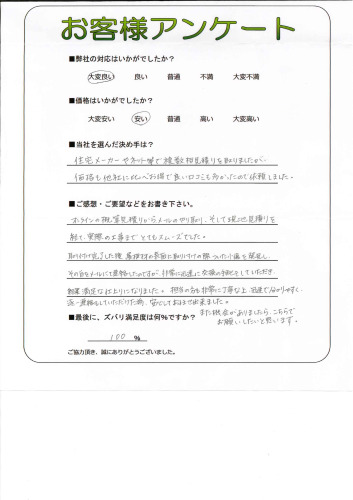 お客様アンケート
■弊社の対応はいかがでしたか？
大変良い 良い 普通 不満 大変不満
■価格はいかがでしたか？
大変安い 安い 普通 高い 大変高い
■当社を選んだ決め手は？
住宅メーカーやネット等で複数相見積りを取りましたが、
価格も他社に比べお得で良い口コミも多かったので依頼しました。
■ご感想・ご要望などをお書き下さい。
オンラインの概算見積りからメールのやり取り、そして現地見積りを
経て、実際の工事までとてもスムーズでした。
取り付け完了した後、屋根材の表面に取り付けの際ついた小傷を発見し、
その旨をメールにて連絡したのですが、非常に迅速に交換の手配をしていただき、
結果満足な仕上りになりました。担当の方も非常に丁寧な上、迅速で分かりやすく、
逐一連絡もしていただけた為、安心しておまかせ出来ました。
■最後に、ズバリ満足度は何％ですか？
また機会がありましたら、こちらで
お願いしたいと思います。
100 ％
ご協力頂き、誠にありがとうございました。